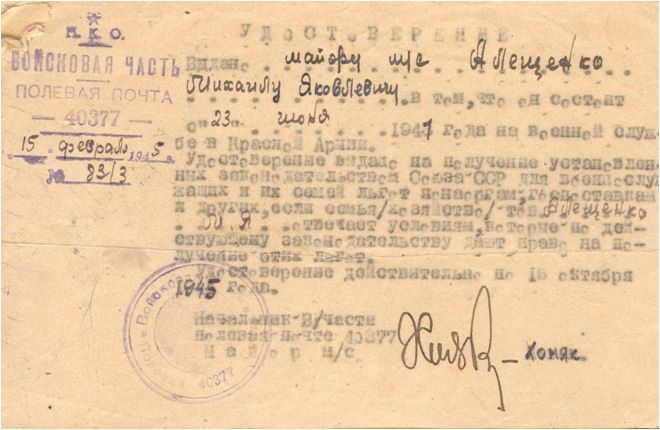 Н.К.О.
ВОЙСКОВАЯ ЧАСТЬ
ПОЛЕВАЯ ПОЧТА
— 40377 —
15 февраль 1945
№ 83/3
УДОСТОВЕРЕНИЕ
Выдано майору м/с Алещенко
Михаилу Яковлевичу
в том, что он состоит
с 23 июня 1941 года на военной служ-
бе в Красной Армии.
Удостоверение выдано на получение установлен-
ных законодательством Союза ССР для военнослу-
жащих и их семей льгот по налогам, гос поставкам
и другим, если семья/хозяйство/ тов. Алещенко
М.Я. отвечает условиям, которые по дей-
ствующему законодательству дают право на по-
лучение этих льгот.
Удостоверение действительно по 15 октября
1945 года.
Начальник В/части
полевая почта 40377
Майор м/с
— Хомяк.
Войсковая
40377